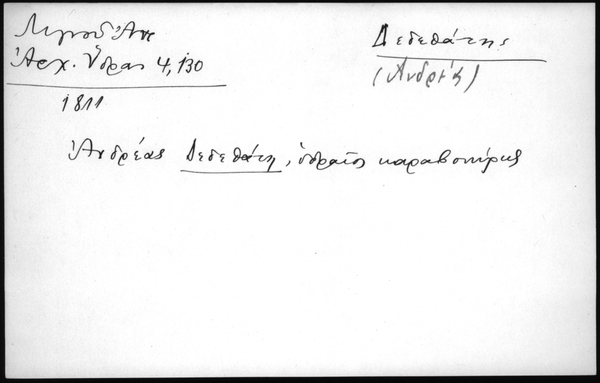 Λιγνοῦ Ἀντ
Ἀρχ. Ὕδρας 4,130
1811
Δεδεθάτης
(Ἀνδρέας)
Ἀνδρέας Δεδεθάτη, ὑδραῖος καραβοκύρης